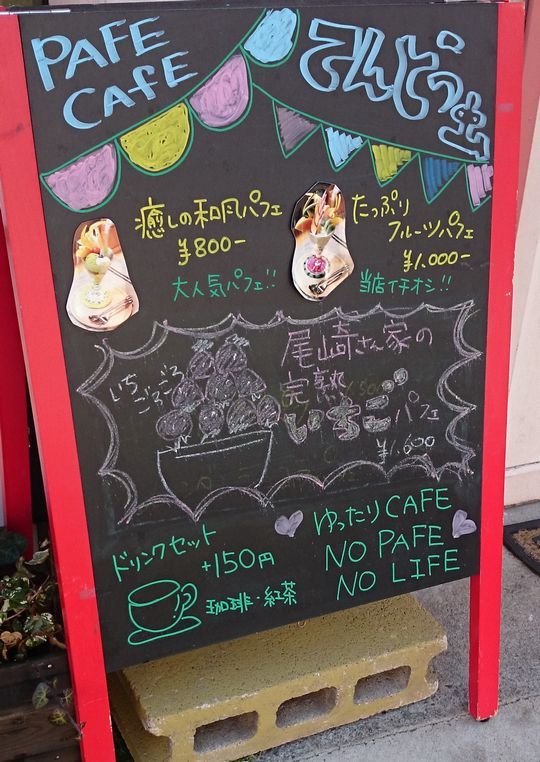 PAFE
CAFE
さんどりぇ
癒しの和風パフェ
¥800-
大人気パフェ!!
たっぷり
フルーツパフェ
¥1,000-
当店イチオシ!!
いちご
ごろごろ
尾崎さん家の
完熟
いちごパフェ
¥1,600
ドリンクセット
+150円
珈琲・紅茶
ゆったりCAFE
NO PAFE
NO LIFE